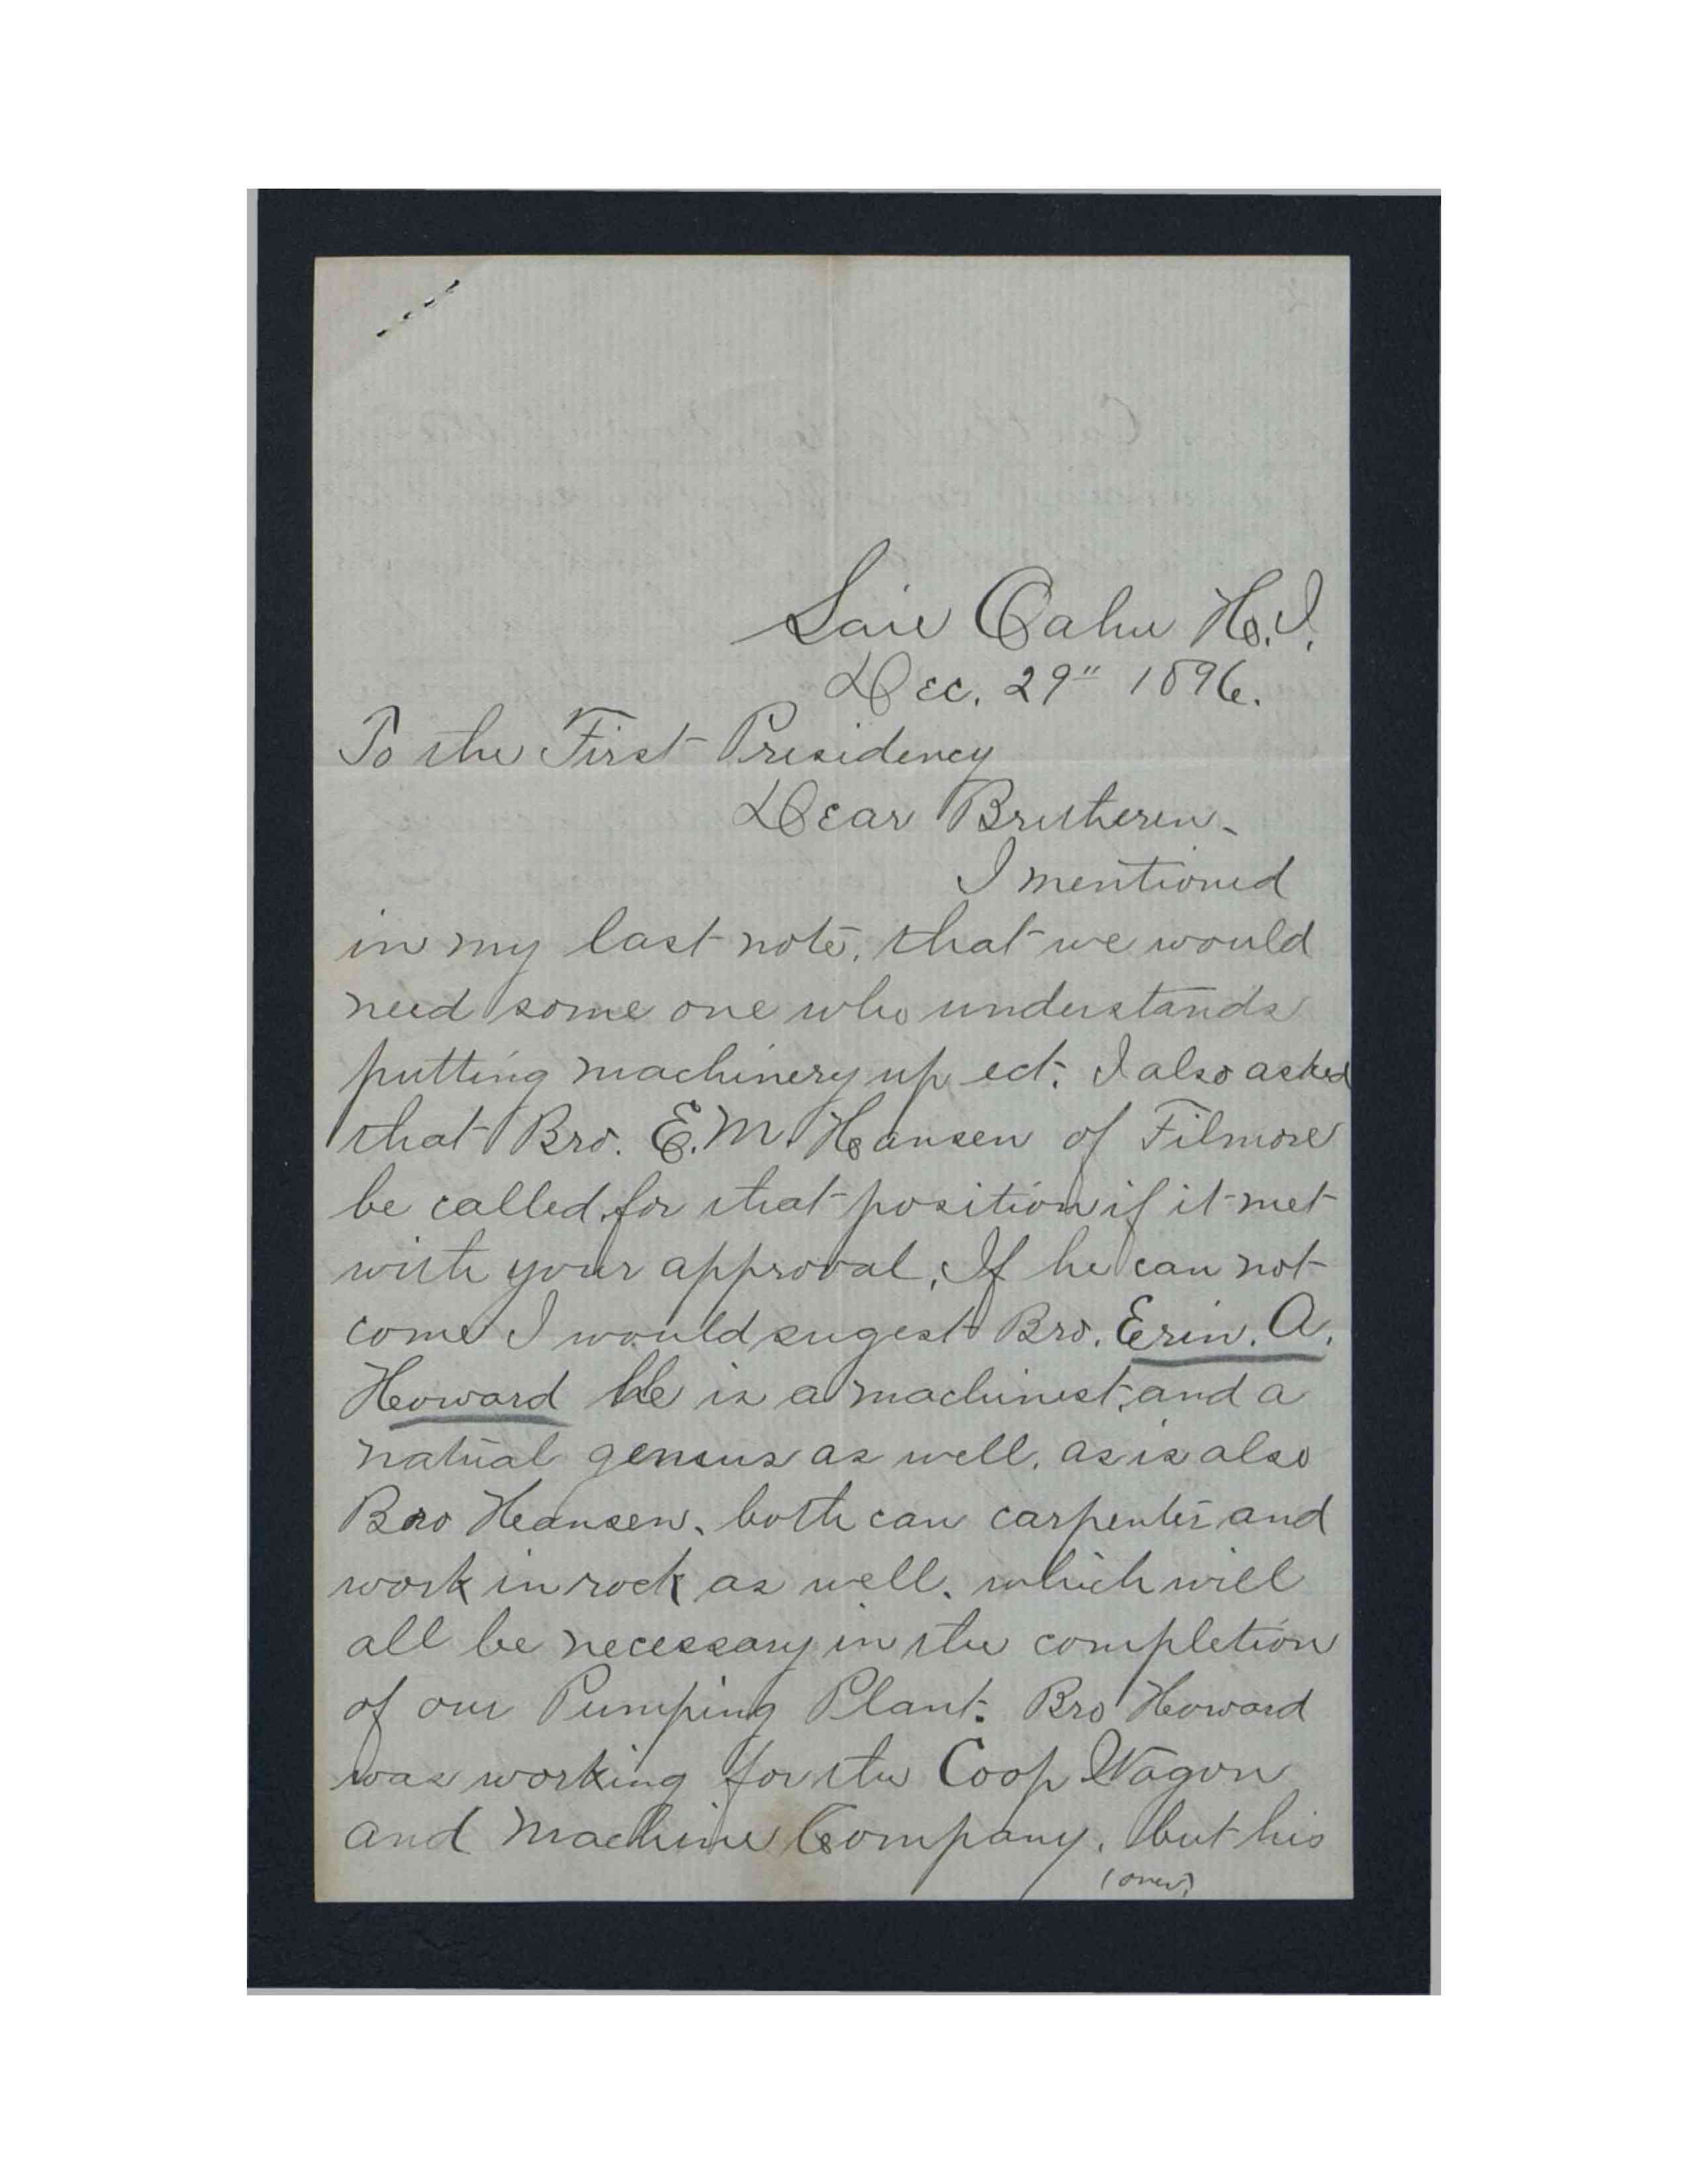 Laie Oahu H.I.
Dec. 29" 1896.
To the First Presidency
Dear Bretheren-
I mentioned
in my last note, that we would
need some one who understands
putting machinery up ect. I also asked
that Bro. E.M. Hansen of Filmore
be called for that position if it met
with your approval, If he can not
come I would sugest Bro. Erin. A.
Howard He is a machinest, and a
natual genius as well, as is also
Bro Hansen, both can carpenter and
work in rock as well, which will
all be necessary in the completion
of our Pumping Plant. Bro Howard
was working for the Coop Wagon
and Machine Company, but his
(over)